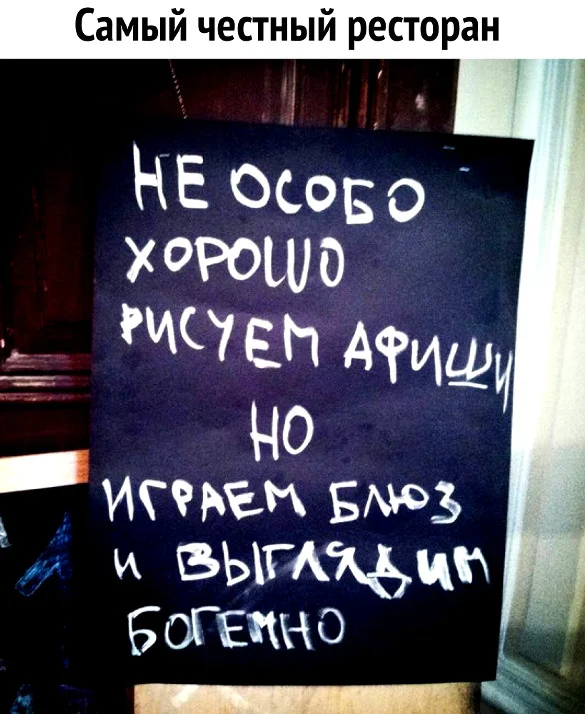 Самый честный ресторан
НЕ ОСОБО
ХОРОШО
РИСУЕМ АФИШИ
НО
ИГРАЕМ БЛЮЗ
И ВЫГЛЯДИМ
БОГЕМНО